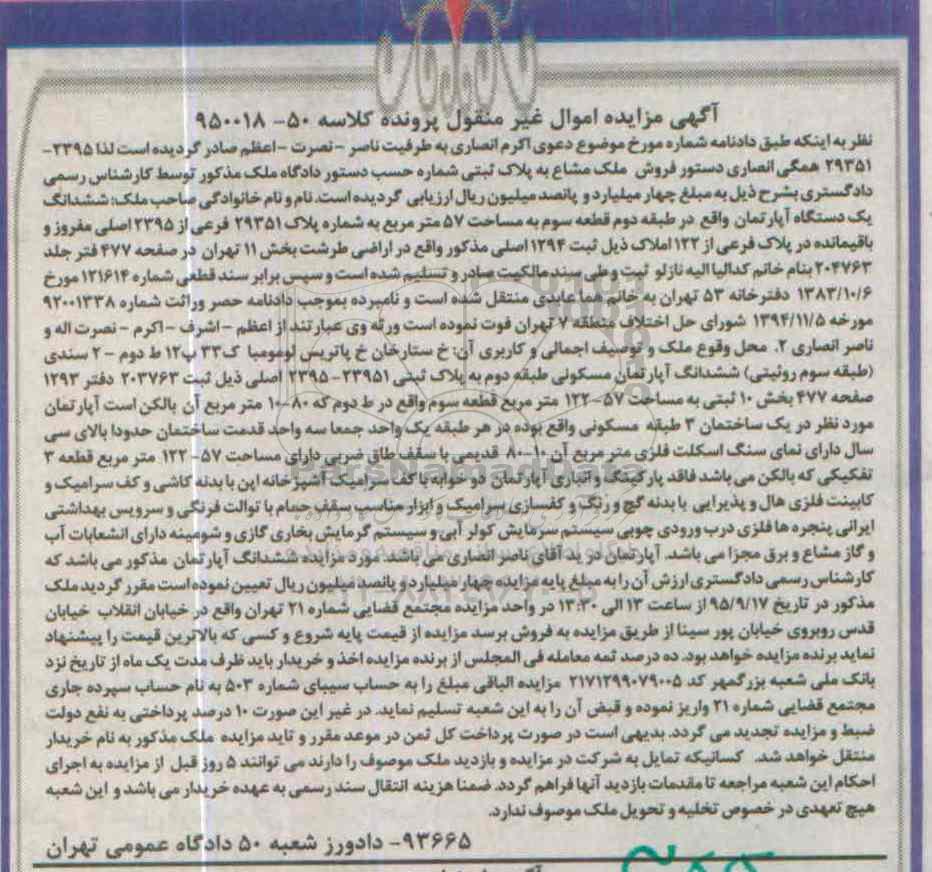 آگهی مزایده اموال غیر منقول پرونده کلاسه ۵۰- ۹۵۰۰۱۸
نظر به اینکه طبق دادنامه شماره مورخ موضوع دعوی اکرم انصاری به طرفیت ناصر -نصرت -اعظم صادر گردیده است لذا ۲۳۹۵-
۲۹۳۵۱ همگی انصاری دستور فروش ملک مشاع به پلاک ثبتی شماره حسب دستور دادگاه ملک مذکور توسط کارشناس رسمی
دادگستری بشرح ذیل به مبلغ چهار میلیارد و پانصد میلیون ریال ارزیابی گردیده است. نام و نام خانوادگی صاحب ملک: ششدانگ
یک دستگاه آپارتمان واقع در طبقه دوم قطعه سوم به مساحت ۵۷ متر مربع به شماره پلاک ۲۹۳۵۱ فرعی از ۲۳۹۵ اصلی مفروز و
باقیمانده در پلاک فرعی از ۱۲۲ املاک ذیل ثبت ۱۲۹۴ اصلی مذکور واقع در اراضی طرشت بخش ۱۱ تهران در صفحه ۴۷۷ فتر جلد
۲۰۴۷۶۳ بنام خانم کدالیا الیه نازلو ثبت و طی سند مالکیت صادر و تسلیم شده است و سپس برابر سند قطعی شماره ۱۲۱۶۱۴ مورخ
۱۳۸۳/۱۰/۶ دفترخانه ۵۳ تهران به خانم هما عابدی منتقل شده است و نامبرده بموجب دادنامه حصر وراثت شماره ۹۲۰۰۱۳۳۸
مورخه ۱۳۹۴/۱۱/۵ شورای حل اختلاف منطقه ۷ تهران فوت نموده است ورثه وی عبارتند از اعظم - اشرف - اکرم - نصرت اله و
ناصر انصاری ۲. محل وقوع ملک و توصیف اجمالی و کاربری آن: خ ستارخان خ پاتریس لومومبا ک۳۳ پ۱۲ ط دوم - ۲ سندی
(طبقه سوم روئیتی) ششدانگ آپارتمان مسکونی طبقه دوم به پلاک ثبتی ۲۳۹۵۱- ۲۳۹۵ اصلی ذیل ثبت ۲۰۳۷۶۳ دفتر ۱۲۹۳
صفحه ۴۷۷ بخش ۱۰ ثبتی به مساحت ۵۷- ۱۲۲ متر مربع قطعه سوم واقع در ط دوم که ۸۰-۱۰ متر مربع آن بالکن است آپارتمان
مورد نظر در یک ساختمان ۳ طبقه مسکونی واقع بوده در هر طبقه یک واحد جمعا سه واحد قدمت ساختمان حدودا بالای سی
سال دارای نمای سنگ اسکلت فلزی متر مربع آن ۱۰-۸۰ قدیمی با سقف طاق ضربی دارای مساحت ۵۷- ۱۲۲ متر مربع قطعه ۳
تفکیکی که بالکن می باشد فاقد پارکینگ و انباری آپارتمان دو خوابه با کف سرامیک آشپزخانه اپن با بدنه کاشی و کف سرامیک و
کابینت فلزی هال و پذیرایی با بدنه گچ و رنگ و کفسازی سرامیک و ابزار مناسب سقف حمام با توالت فرنگی و سرویس بهداشتی
ایرانی پنجره ها فلزی درب ورودی چوبی سیستم سرمایش کولر آبی و سیستم گرمایش بخاری گازی و شومینه دارای انشعابات آب
و گاز مشاع و برق مجزا می باشد. آپارتمان در ید آقای ناصر انصاری می باشد. مورد مزایده ششدانگ آپارتمان مذکور می باشد که
کارشناس رسمی دادگستری ارزش آن را به مبلغ پایه مزایده چهار میلیارد و پانصد میلیون ریال تعیین نموده است مقرر گردید ملک
مذکور در تاریخ ۹۵/۹/۱۷ از ساعت ۱۳ الی ۱۳:۳۰ در واحد مزایده مجتمع قضایی شماره ۲۱ تهران واقع در خیابان انقلاب خیابان
قدس روبروی خیابان پور سینا از طریق مزایده به فروش برسد مزایده از قیمت پایه شروع و کسی که بالاترین قیمت را پیشنهاد
نماید برنده مزایده خواهد بود. ده درصد ثمه معامله فی المجلس از برنده مزایده اخذ و خریدار باید ظرف مدت یک ماه از تاریخ نزد
بانک ملی شعبه بزرگمهر کد ۲۱۷۱۲۹۹۰۷۹۰۰۵ مزایده الباقی مبلغ را به حساب سیبای شماره ۵۰۳ به نام حساب سپرده جاری
مجتمع قضایی شماره ۲۱ واریز نموده و قبض آن را به این شعبه تسلیم نماید. در غیر این صورت ۱۰ درصد پرداختی به نفع دولت
ضبط و مزایده تجدید می گردد. بدیهی است در صورت پرداخت کل ثمن در موعد مقرر و تاید مزایده ملک مذکور به نام خریدار
منتقل خواهد شد. کسانیکه تمایل به شرکت در مزایده و بازدید ملک موصوف را دارند می توانند ۵ روز قبل از مزایده به اجرای
احکام این شعبه مراجعه تا مقدمات بازدید آنها فراهم گردد. ضمنا هزینه انتقال سند رسمی به عهده خریدار می باشد و این شعبه
هیچ تعهدی در خصوص تخلیه و تحویل ملک موصوف ندارد.
۹۳۶۶۵- دادورز شعبه ۵۰ دادگاه عمومی تهران